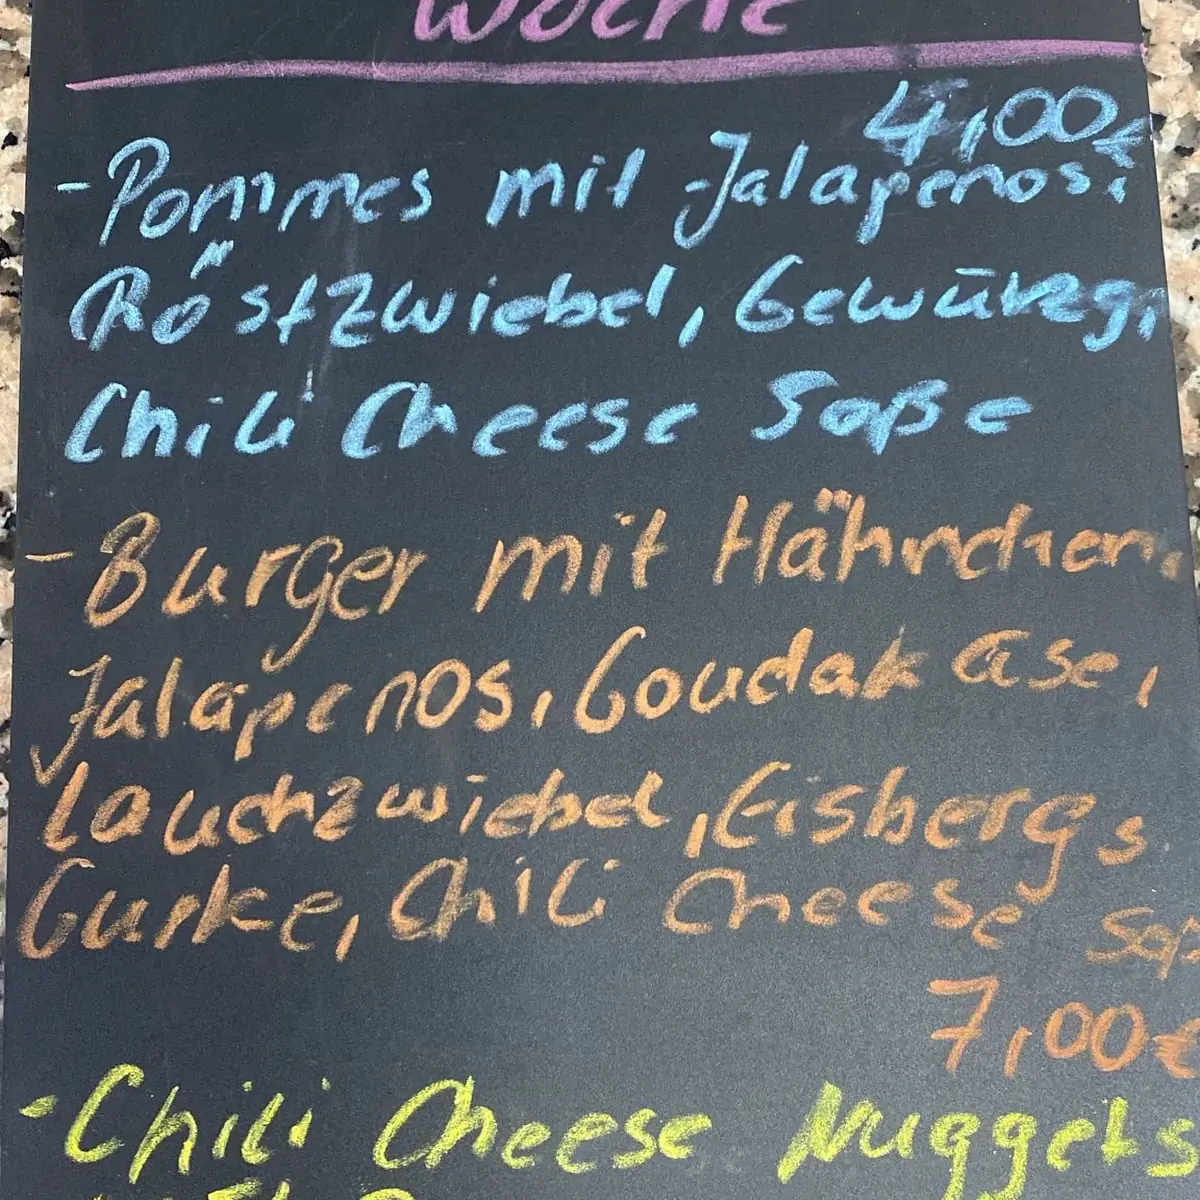 Woche
4,00€
- Pommes mit Jalapenos,
Röstzwiebel, Gewürzg,
Chili Cheese Soße
- Burger mit Hähnchen,
Jalapenos, Goudakäse,
Lauchzwiebel, Eisbergs
Gurke, Chili Cheese Soß
7,00€
- Chili Cheese Nuggets